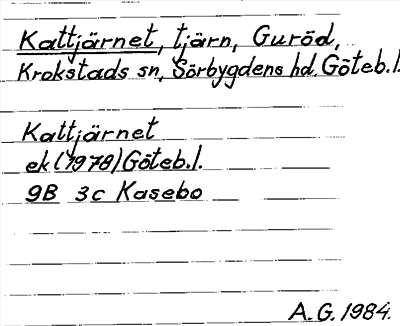 Kattjärnet, tjärn, Guröd,
Krokstads sn, Sörbygdens hd. Göteb.l.
Kattjärnet
ek (1978) Göteb.l.
9B 3c Kasebo
A.G. 1984.